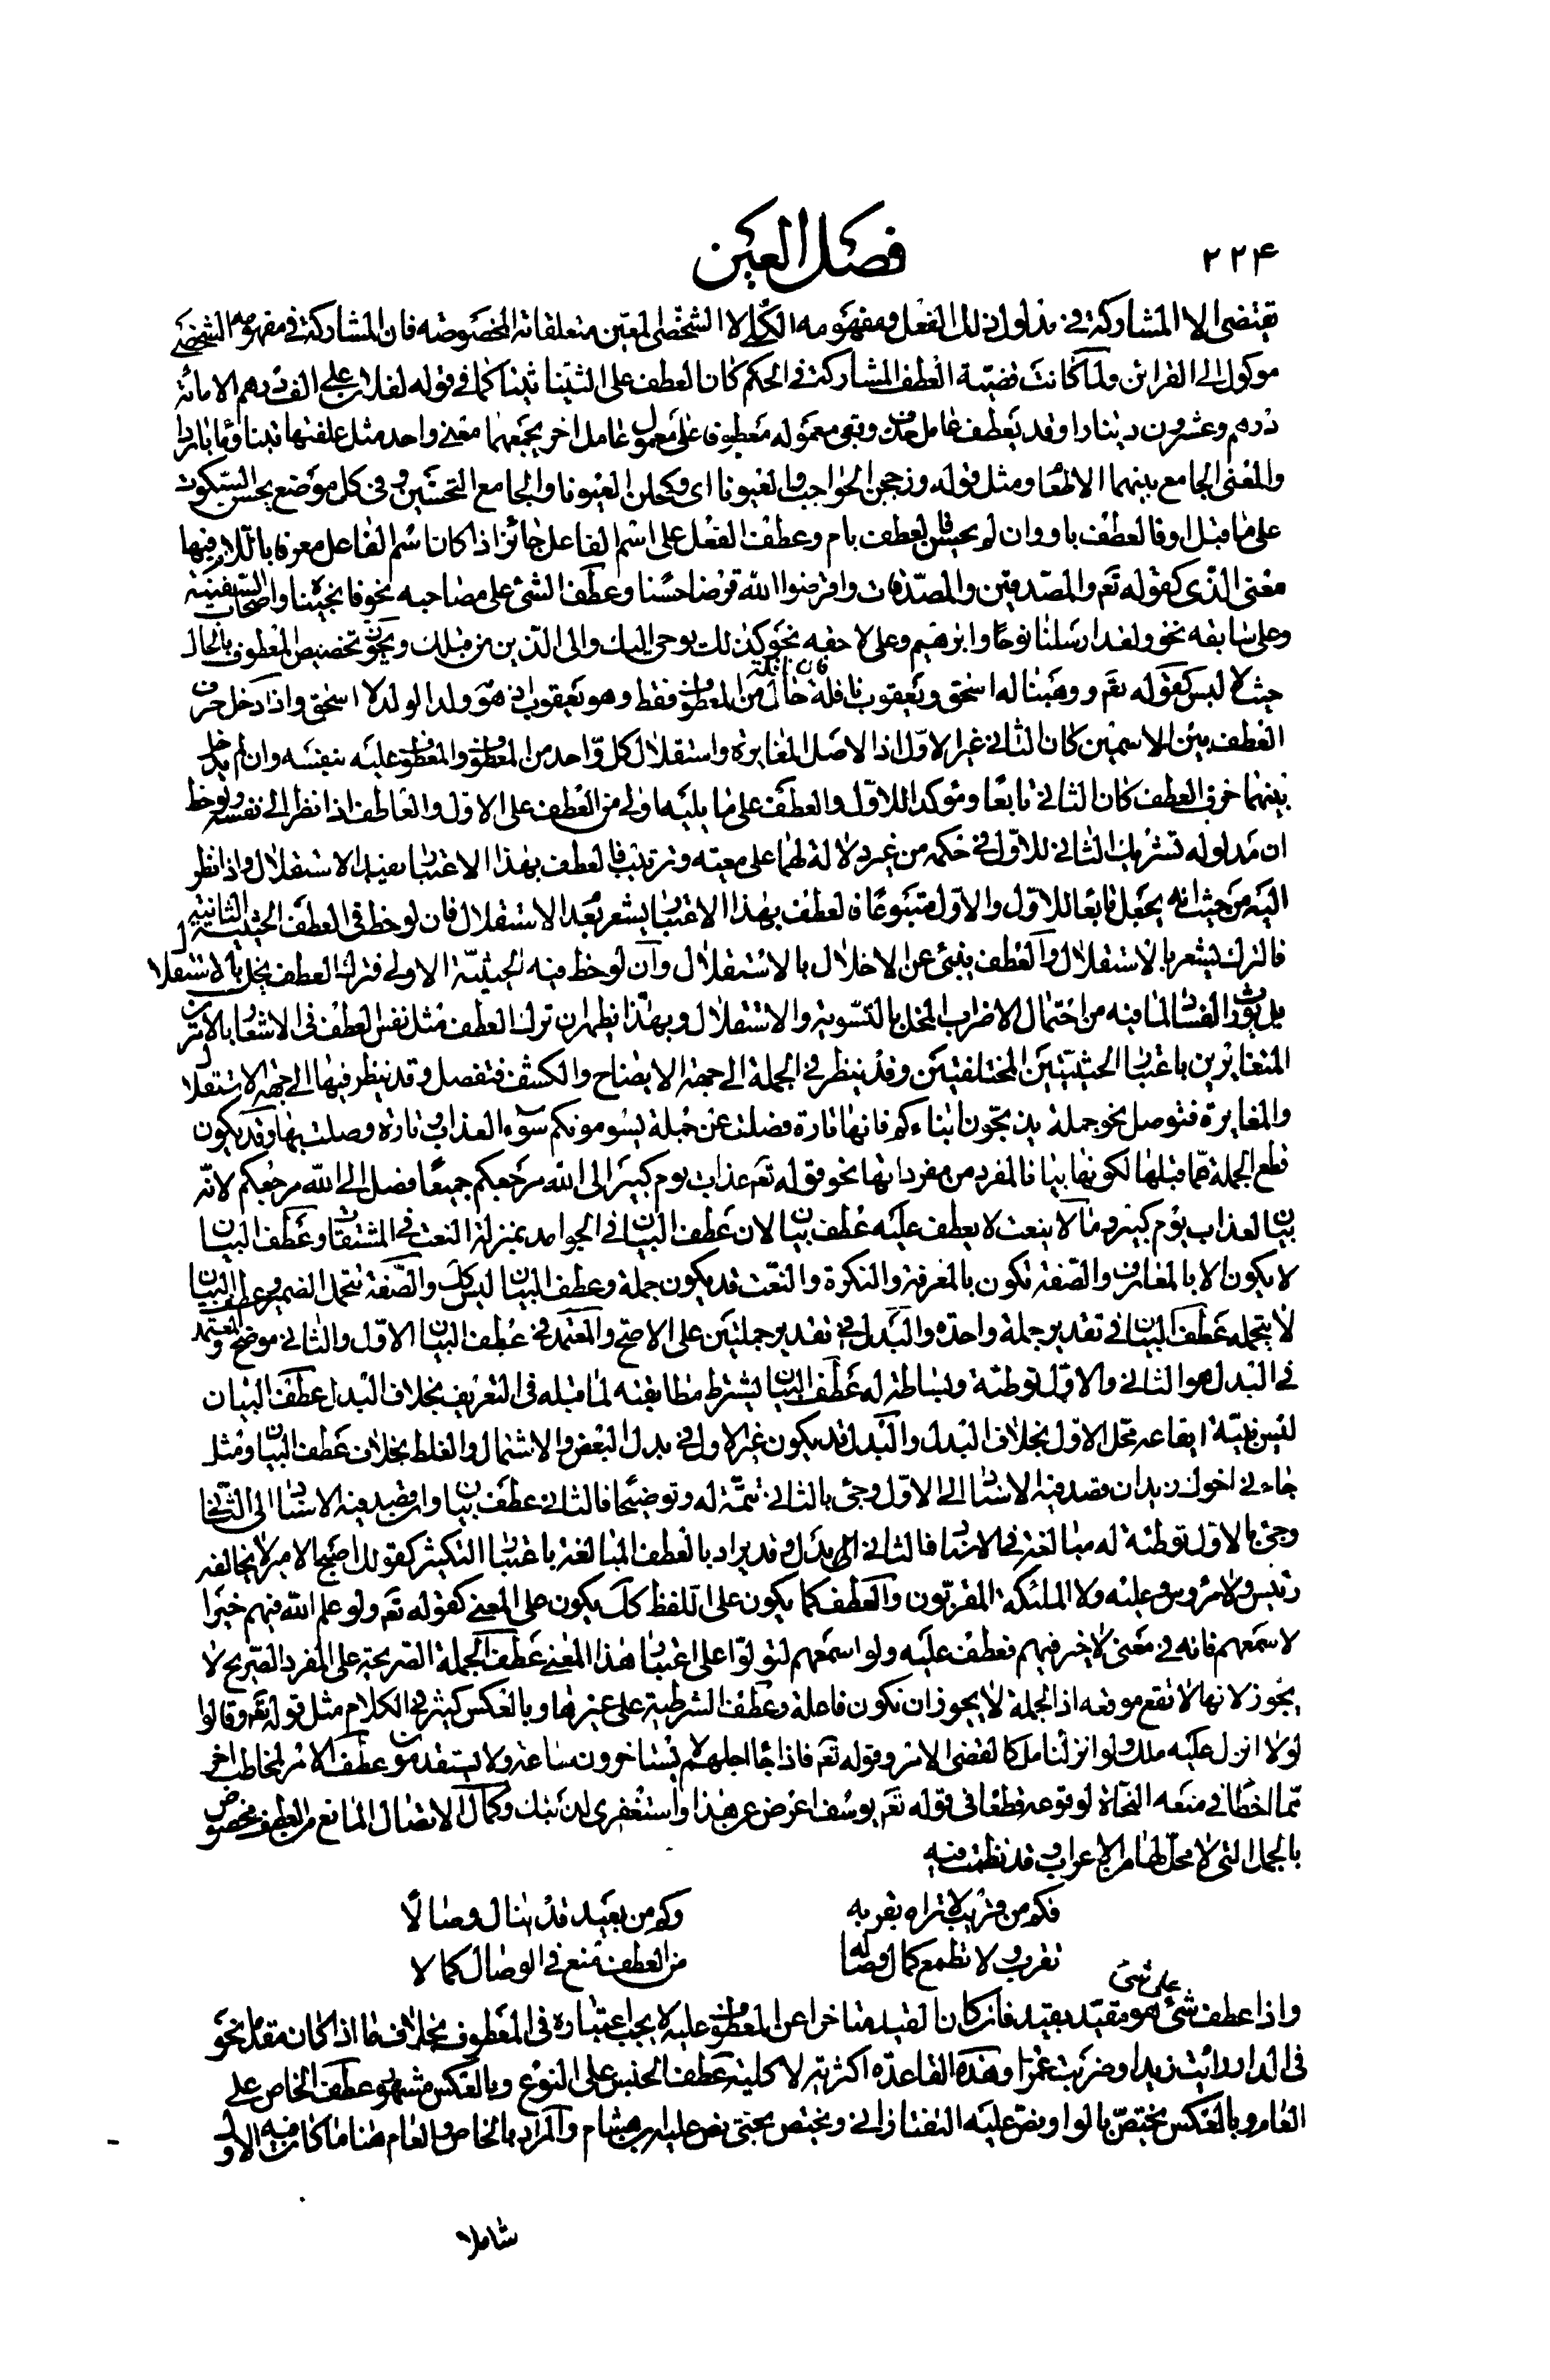 ٢٢۴
فصل العين
يقتضى الا المشاركة فى مدلول ذلك الفعل ومفهومه الكلى لا الشخصى المعين متعلقاته المخصوصه فان المشاركة فى مفهومه الشخصى
موكول الى القرائن ولما كانت قضية العطف المشاركة فى الحكم كان العطف على الثنيا ثنيا كما فى قوله لفلان على الف درهم الا مائة
درهم وعشرون دينارا وقد يعطف عامل حذف وبقى معموله معطوفا على معمول عامل اخر يجمعهما معنى واحد مثل علفتها تبنا وماء باردا
والمعنى الجامع بينهما الاطعام ومثل قوله وزججن الحواجب والعيونا اى وكحلن العيونا والجامع التحسين وفى كل موضع يحسن السكوت
على ما قبل او فالعطف باو وان لم يحسن فالعطف بام وعطف الفعل على اسم الفاعل جائز اذا كان اسم الفاعل معرفا باللام فيها
معنى الذى كقوله تعم والمصدقين والمصدقات واقرضوا الله قرضا حسنا وعطف الشئ على مصاحبه نحو فانجيناه واصحاب السفينة
وعلى سابقه نحو ولقد ارسلنا نوحا وابرهيم وعلى لاحقه نحو كذلك يوحى اليك والى الذين من قبلك ويجوز تخصيص المعطوف بالحال
حيث لا لبس كقوله تعم ووهبنا له اسحق ويعقوب نافلة فان نافلة حال من المعطوف فقط وهو يعقوب اذ هو ولد الولد لا اسحق واذا دخل حرف
العطف بين الاسمين كان الثانى غير الاول اذ الاصل المغايرة واستقلال كل واحد من المعطوف والمعطوف عليه بنفسه وان لم يدخل
بينهما حرف العطف كان الثانى تابعا ومؤكدا للاول والعطف على ما يليه اولى من العطف على الاول والعاطف اذا نظر الى نفسه ولوحظ
ان مدلوله تشريك الثانى للاول فى حكمه من غير دلالة لهما على معيته وترتيب فالعطف بهذا الاعتبار يفيد الاستقلال واذا نظر
اليه من حيث انه يجعل تابعا للاول والاول متبوعا فالعطف بهذا الاعتبار يشعر بعدم الاستقلال فان لوحظ فى العطف الحيثية الثانية
فالترك يشعر بالاستقلال والعطف ينبئ عن الاخلال بالاستقلال وان لوحظ فيه الحيثية الاولى فترك العطف يخل بالاستقلال
بل يورث الفساد لما فيه من احتمال الاضراب المخل بالتسوية والاستقلال وبهذا يظهر ان ترك العطف مثل نفس العطف فى الاشعار بالامرين
المتغايرين باعتبار الحيثيتين المختلفتين وقد ينظر فى الجملة الى جهة الايضاح والكشف فتفصل وقد ينظر فيها الى جهة الاستقلال
والمغايرة فتوصل نحو جملة يذبحون ابناءكم فانها تارة فصلت عن جملة يسومونكم سوء العذاب وتارة وصلت بها وقد يكون
قطع الجملة عما قبلها لكونها بيانا لمفرد من مفرداتها نحو قوله تعم عذاب يوم كبير الى الله مرجعكم جميعا فصل الى الله مرجعكم لانه
بيان لعذاب يوم كبير وما لا ينعت لا يعطف عليه عطف بيان لان عطف البيان فى الجوامد بمنزلة النعت فى المشتقات وعطف البيان
لا يكون الا بالمعارف والصفة تكون بالمعرفة والنكرة والنعت قد يكون جملة وعطف البيان ليس كك والصفة تتحمل الضمير وعطف البيان
لا يتحمله عطف البيان فى تقدير جملة واحدة والبدل فى تقدير جملتين على الاصح والمعتمد فى عطف البيان الاول والثانى موضح والمعتمد
فى البدل هو الثانى والاول توطئة وبساطة له عطف البيان يشترط مطابقته لما قبله فى التعريف بخلاف البدل عطف البيان
ليس بنية ايقاعه محل الاول بخلاف البدل والبدل قد يكون غير الاول فى بدل البعض والاشتمال والغلط بخلاف عطف البيان ومثل
جاءنى اخوك زيد ان قصد فيه الاسناد الى الاول وجئ بالثانى تتمة له وتوضيحا فالثانى عطف بيان وان قصد فيه الاسناد الى الثانى
وجئ بالاول توطئة له مبالغة فى الاسناد فالثانى بدل وقد يراد بالعطف المبالغة باعتبار التكثير كقولك اصبح الامير لا يخالفه
رئيس ولا مرؤوس وعليه ولا الملئكة المقربون والعطف كما يكون على اللفظ كك يكون على المعنى كقوله تعم ولو علم الله فيهم خيرا
لاسمعهم فانه فى معنى لا خير فيهم فعطف عليه ولو اسمعهم لتولوا على اعتبار هذا المعنى عطف الجملة الصريحة على المفرد الصريح لا
يجوز لانها لا تقع موقعه اذ الجملة لا يجوز ان تكون فاعلة وعطف الشرطية على غيرها وبالعكس كثير فى الكلام مثل قوله تعم وقالوا
لولا انزل عليه ملك ولو انزلنا ملكا لقضى الامر وقوله تعم فاذا جاء اجلهم لا يستاخرون ساعة ولا يستقدمون عطف الامر لمخاطب اخر
مما اخطا فى منعه النحاة لوقوعه قطعا فى قوله تعم يوسف اعرض عن هذا واستغفرى لذنبك وكمال الاتصال المانع من العطف مخصوص
بالجمل التى لا محل لها من الاعراب وقد نظمت فيه
فكم من قريب لا تراه بقربه وكم من بعيد قد ينال وصالا
تقرب ولا تطمع كمال وصاله من العطف تمنع فى الوصال كمالا
واذا عطف شئ على شئ هو مقيد بقيد فان كان القيد متاخرا عن المعطوف عليه لا يجب اعتباره فى المعطوف بخلاف ما اذا كان مقدما نحو
فى الدار رايت زيدا وضربت عمرا وهذه القاعدة اكثرية لا كلية عطف الجنس على النوع وبالعكس مشهور وعطف الخاص على
العام وبالعكس يختص بالواو نص عليه التفتازانى ويختص بحتى نص عليه ابن هشام والمراد بالخاص والعام هنا ما كان فيه الاول
شاملا